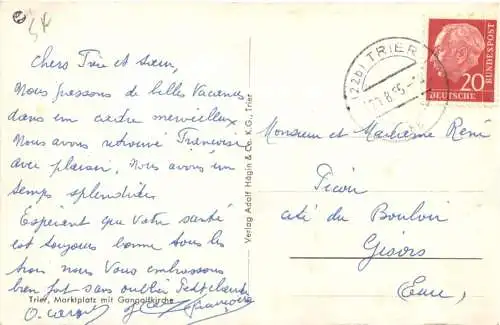 54
Chers Frère et sœur,
Nous passons de belles Vacances
dans un cadre merveilleux
Nous avons retrouvé Francoise
avec plaisir, Nous avons un
temps splendide.
Espérant que Votre santé
est toujours bonne tous les
trois nous Vous embrassons
bien fort sans oublier
Francoise
Trier, Marktplatz mit Gangolfkirche
Verlag Adolf Hägin & Co. K.G., Trier
(22b) TRIER
20
DEUTSCHE
BUNDESPOST
Monsieur et Madame René
Picou
cité du Bouloir
Gisors
Eure,